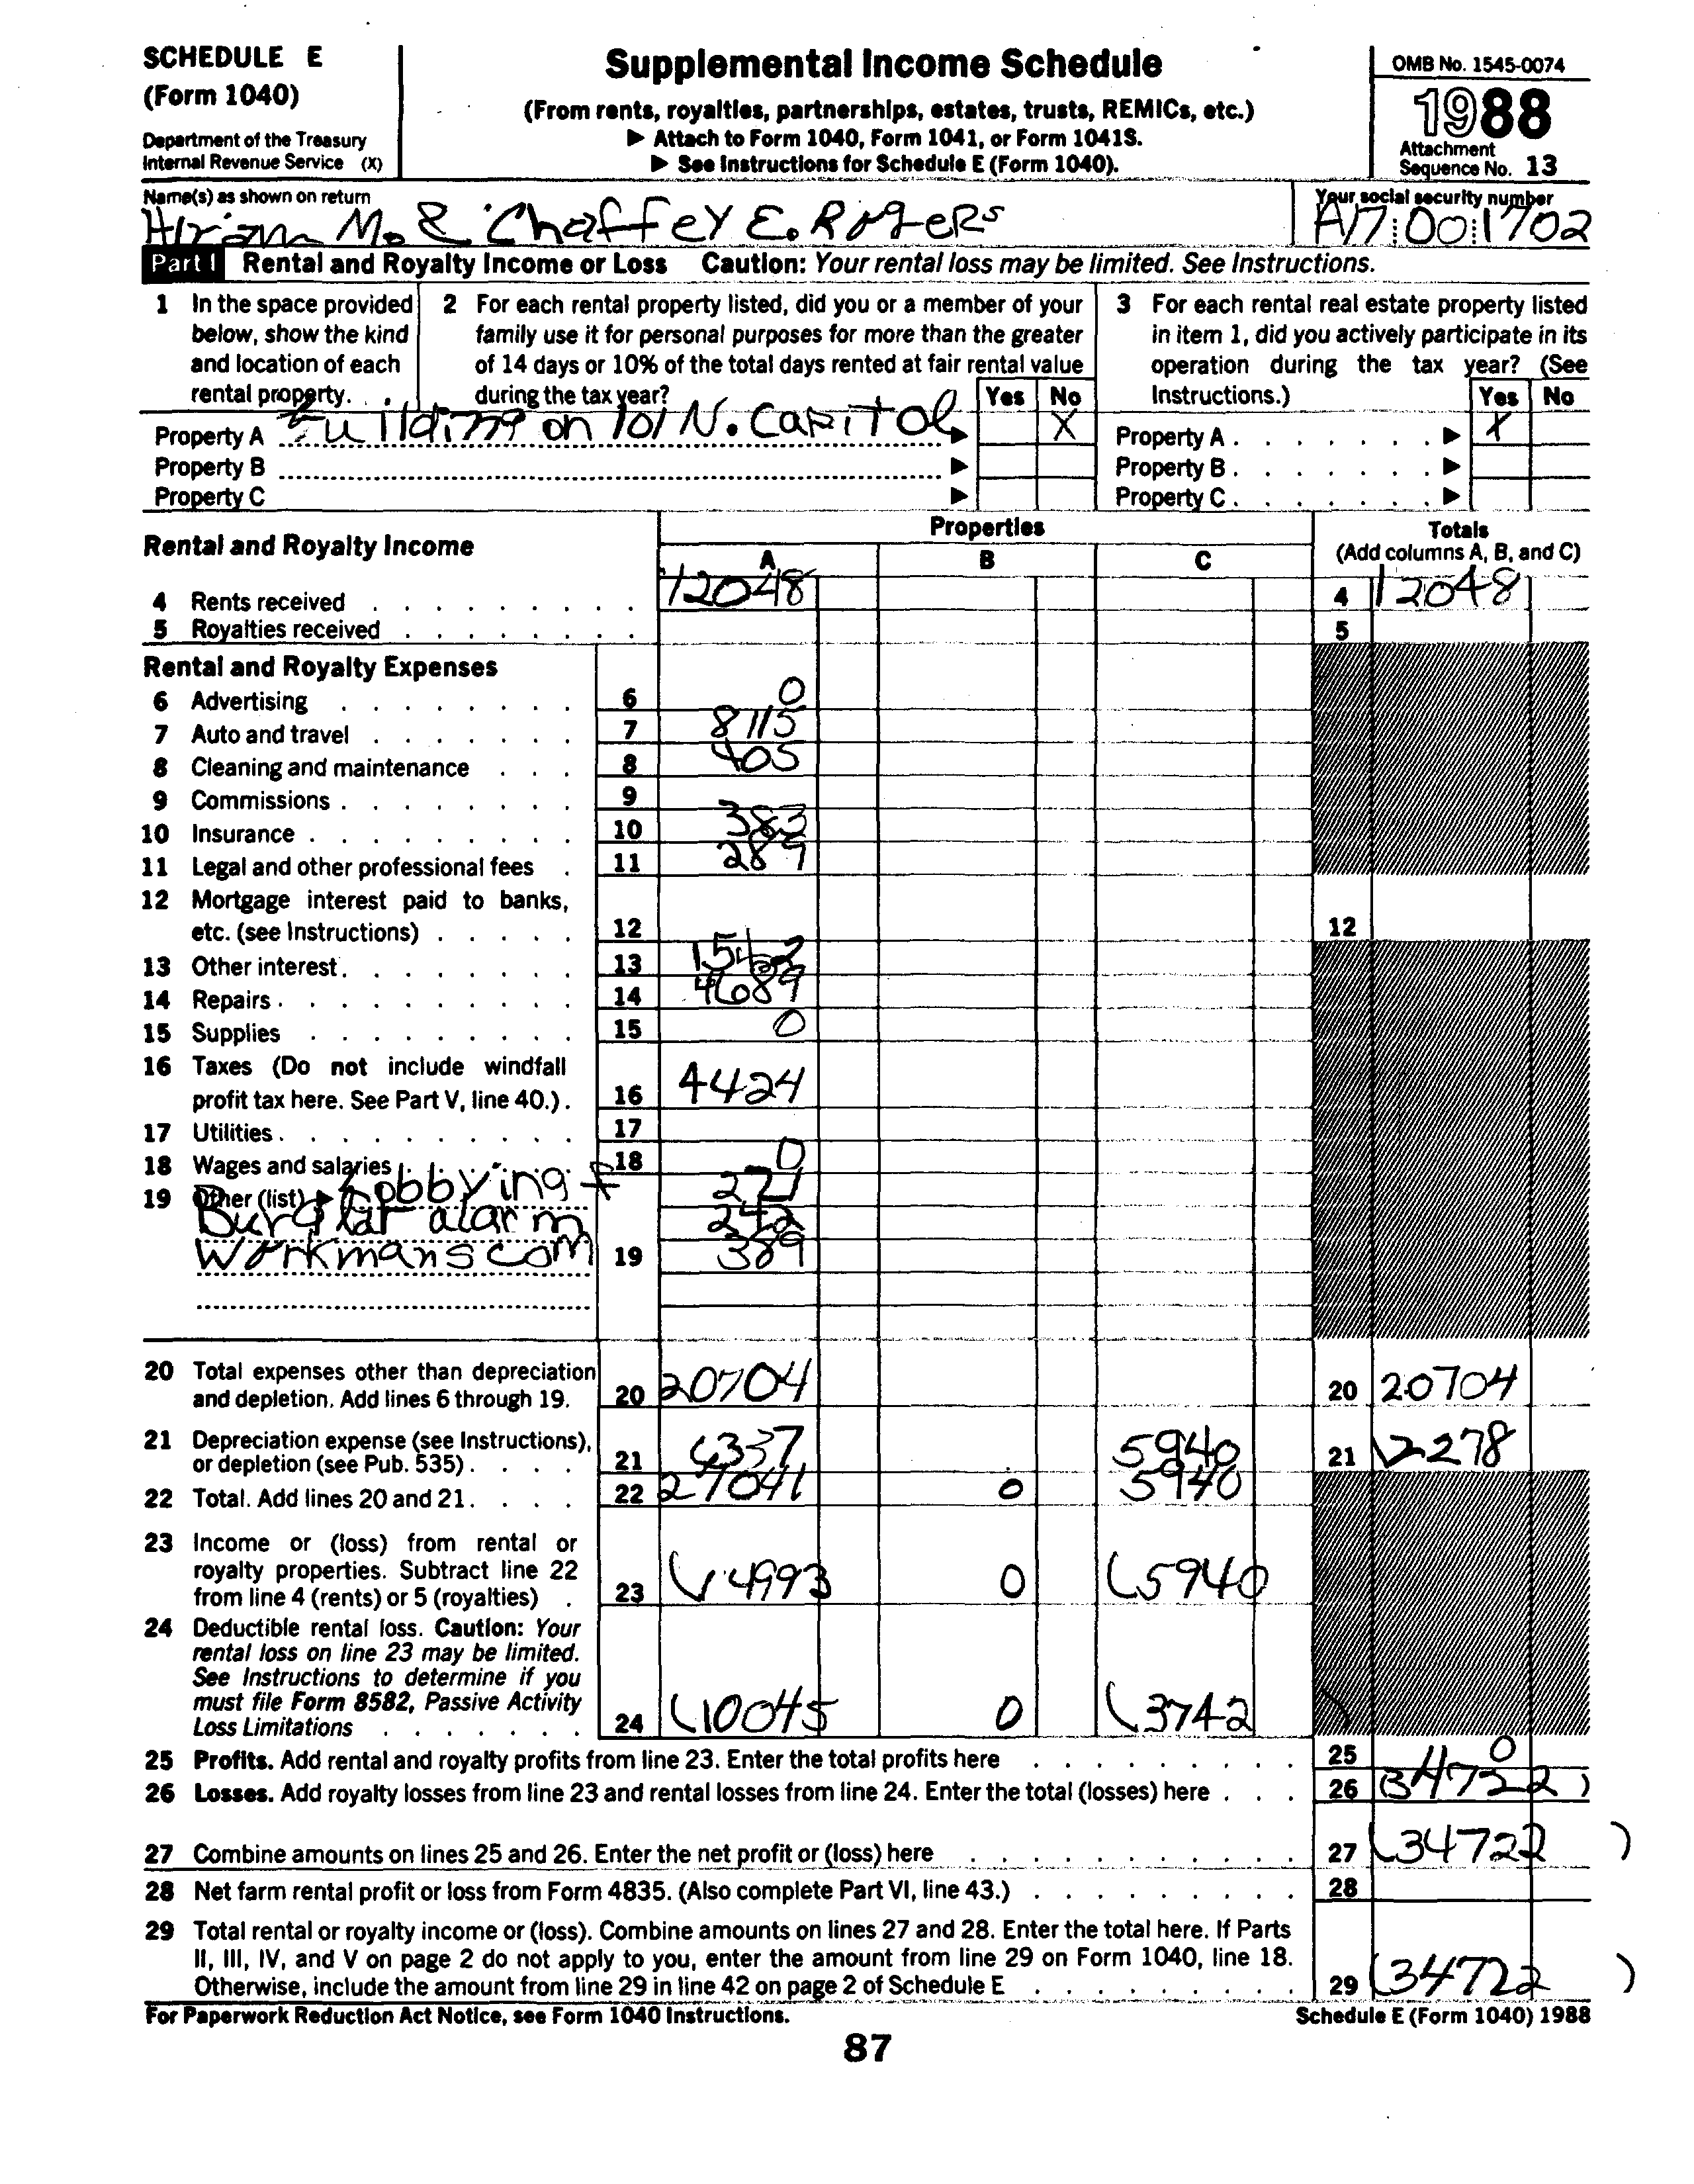 SCHEDULE E
(Form 1040)
Department of the Treasury
Internal Revenue Service (X)
Supplemental Income Schedule
(From rents, royalties, partnerships, estates, trusts, REMICs, etc.)
▶ Attach to Form 1040, Form 1041, or Form 1041S.
▶ See Instructions for Schedule E (Form 1040).
OMB No. 1545-0074
1988
Attachment
Sequence No. 13
Name(s) as shown on return
Hiram M. & Chaffey E. Rogers
Your social security number
A17:00:1702
Part I Rental and Royalty Income or Loss Caution: Your rental loss may be limited. See Instructions.
1 In the space provided
below, show the kind
and location of each
rental property. . .
2 For each rental property listed, did you or a member of your
family use it for personal purposes for more than the greater
of 14 days or 10% of the total days rented at fair rental value
during the tax year? Yes No
3 For each rental real estate property listed
in item 1, did you actively participate in its
operation during the tax year? (See
Instructions.) Yes No
Property A on 101 N. CAPITOL ▶ X
Property B ▶
Property C ▶
Property A . . . . . . . ▶ X
Property B . . . . . . . ▶
Property C . . . . . . . ▶
Rental and Royalty Income
Properties
A B C
Totals
(Add columns A, B, and C)
4 Rents received 12048 4 12048
5 Royalties received 5
Rental and Royalty Expenses
6 Advertising 6 0
7 Auto and travel 7 8115
8 Cleaning and maintenance 8 405
9 Commissions 9
10 Insurance 10 383
11 Legal and other professional fees 11 289
12 Mortgage interest paid to banks,
etc. (see Instructions) 12 12
13 Other interest 13
14 Repairs 14 4689
15 Supplies 15 0
16 Taxes (Do not include windfall
profit tax here. See Part V, line 40.) 16 4424
17 Utilities 17
18 Wages and salaries 18 0
19 Other (list) ▶ Lobbying +
Burglar alarm 242
Workmans com 19 389
20 Total expenses other than depreciation
and depletion. Add lines 6 through 19. 20 20704 20 20704
21 Depreciation expense (see Instructions),
or depletion (see Pub. 535) 21 6337 5940 21 12278
22 Total. Add lines 20 and 21 22 27041 0 5940
23 Income or (loss) from rental or
royalty properties. Subtract line 22
from line 4 (rents) or 5 (royalties) 23 (14993 0 (5940
24 Deductible rental loss. Caution: Your
rental loss on line 23 may be limited.
See Instructions to determine if you
must file Form 8582, Passive Activity
Loss Limitations 24 (10045 0 (3742
25 Profits. Add rental and royalty profits from line 23. Enter the total profits here 25 0
26 Losses. Add royalty losses from line 23 and rental losses from line 24. Enter the total (losses) here 26 (34722)
27 Combine amounts on lines 25 and 26. Enter the net profit or (loss) here 27 (34722)
28 Net farm rental profit or loss from Form 4835. (Also complete Part VI, line 43.) 28
29 Total rental or royalty income or (loss). Combine amounts on lines 27 and 28. Enter the total here. If Parts
II, III, IV, and V on page 2 do not apply to you, enter the amount from line 29 on Form 1040, line 18.
Otherwise, include the amount from line 29 in line 42 on page 2 of Schedule E 29 (34722)
For Paperwork Reduction Act Notice, see Form 1040 Instructions. Schedule E (Form 1040) 1988
87